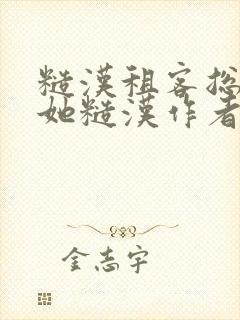 糙漢租客總
她糙漢作者
金志宇